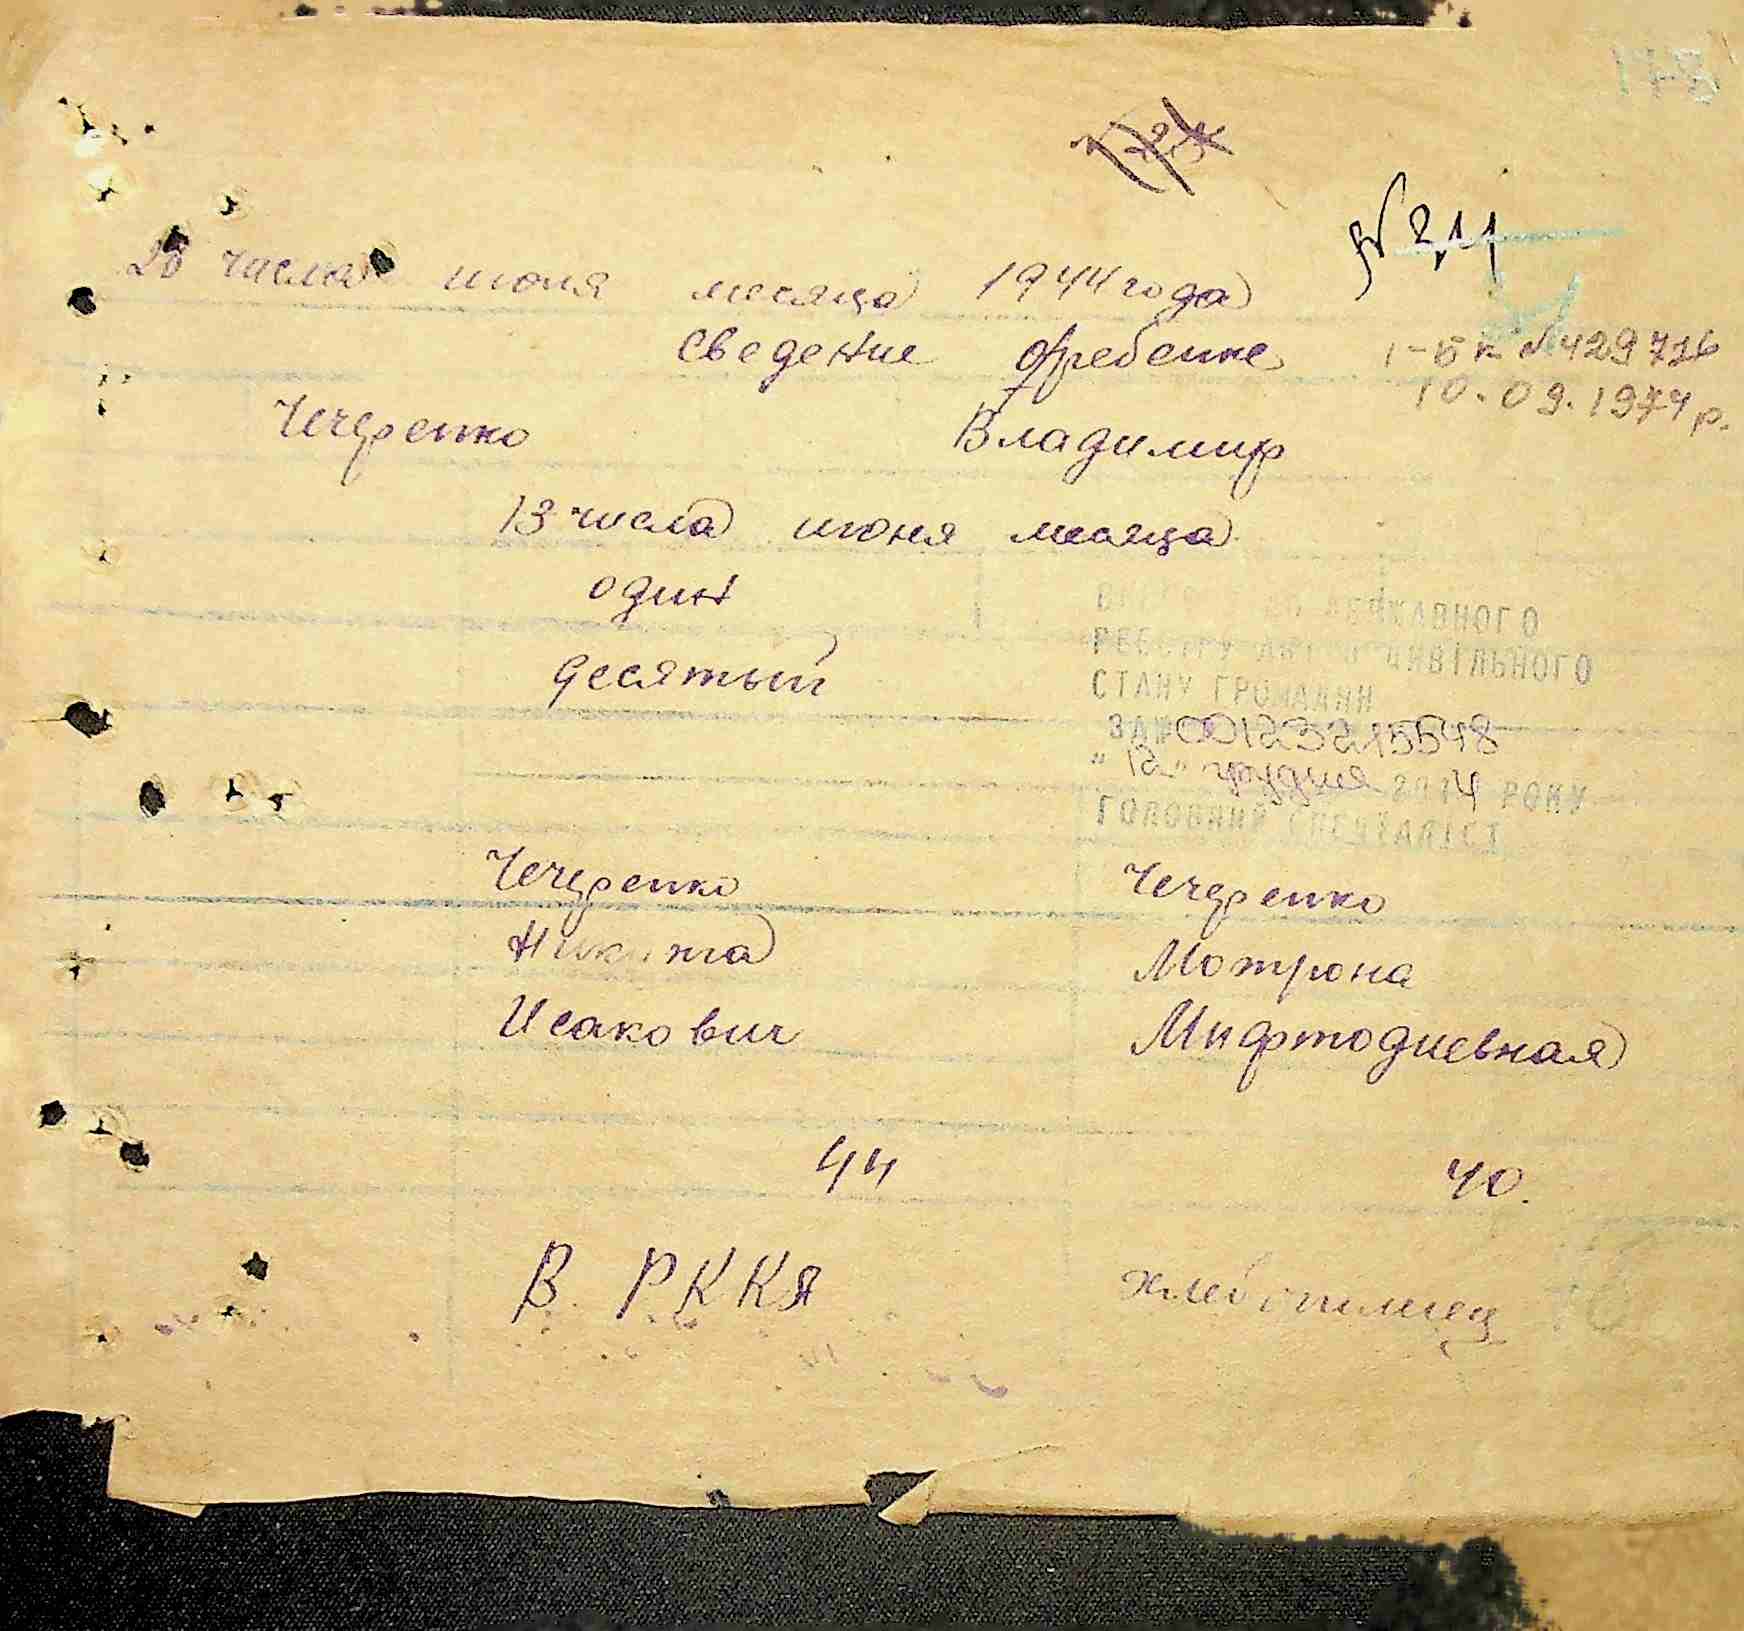 178
№ 211
28 числа июня месяца 1944 года
Сведение о ребенке
1-БК №429726
10.09.1974 р.
Чечеренко Владимир
13 числа июня месяца
один
десятый
ДЕРЖАВНОГО
РЕЄСТРУ АКТІВ ЦИВІЛЬНОГО
СТАНУ ГРОМАДЯН
ЗА № 00123215518
"12" грудня 2014 РОКУ
ГОЛОВНИЙ СПЕЦІАЛІСТ
Чечеренко Чечеренко
Никита Мотрона
Исакович Мифтодиевная
44 40.
В РККА хлебопашец